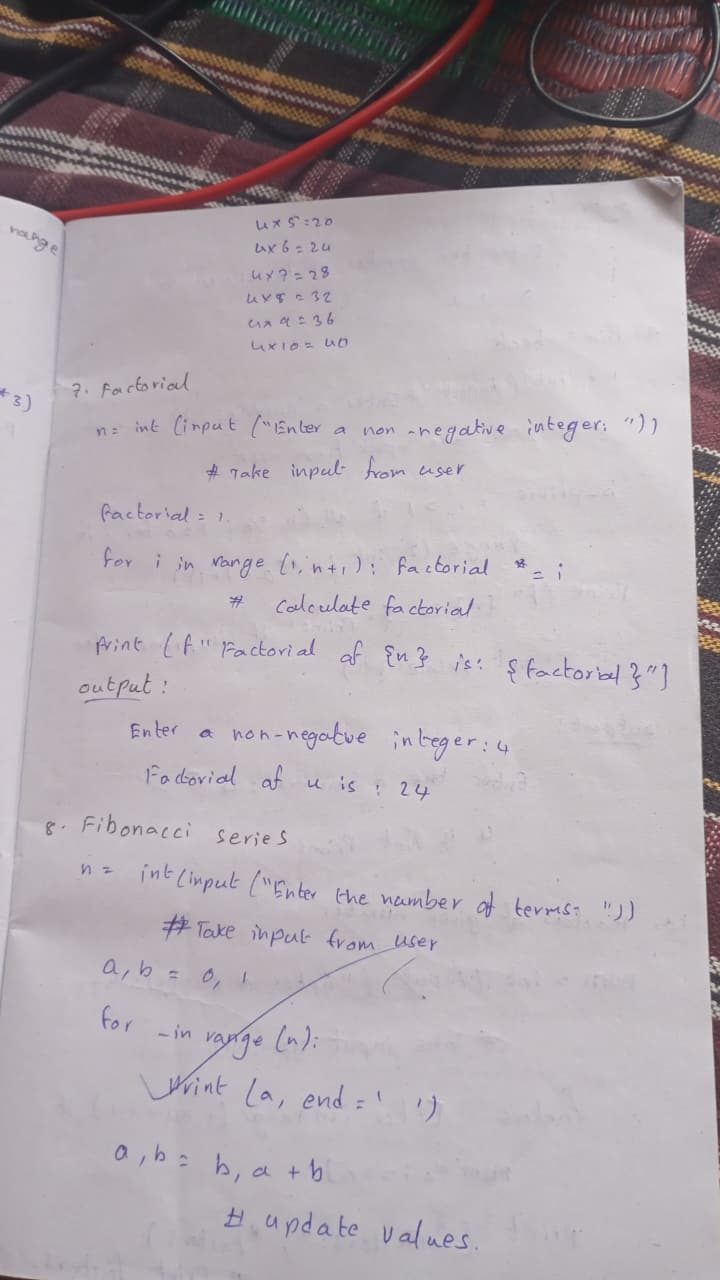 range
*3)
4x5=20
4x6=24
4x7=28
4x8=32
4x9=36
4x10=40
7. Factorial
n= int (input ("Enter a non-negative integer: "))
# Take input from user
factorial = 1
for i in range (1, n+1): factorial *= i
# Calculate factorial
Print (f"Factorial of {n} is: {factorial}")
output:
Enter a non-negatve integer: 4
Factorial of 4 is: 24
8. Fibonacci series
n= int(input ("Enter the number of terms: "))
# Take input from user
a, b = 0, 1
for _ in range (n):
Print (a, end = ' ')
a, b = b, a + b
# update values.